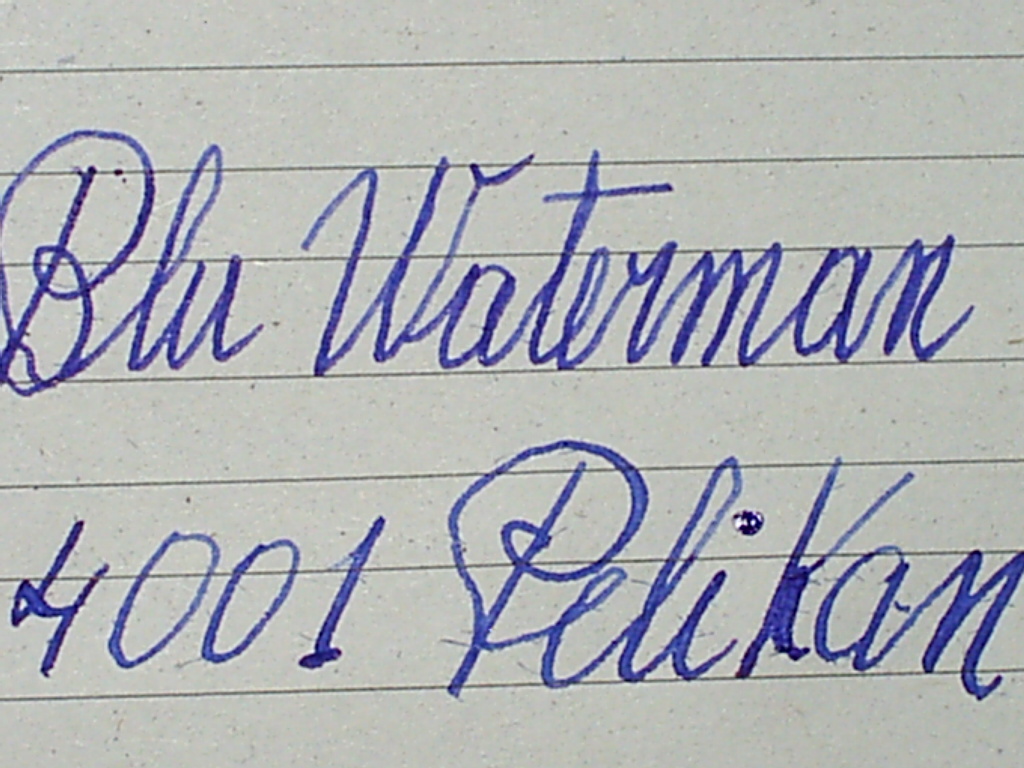 Blu Waterman
4001 Pelikan